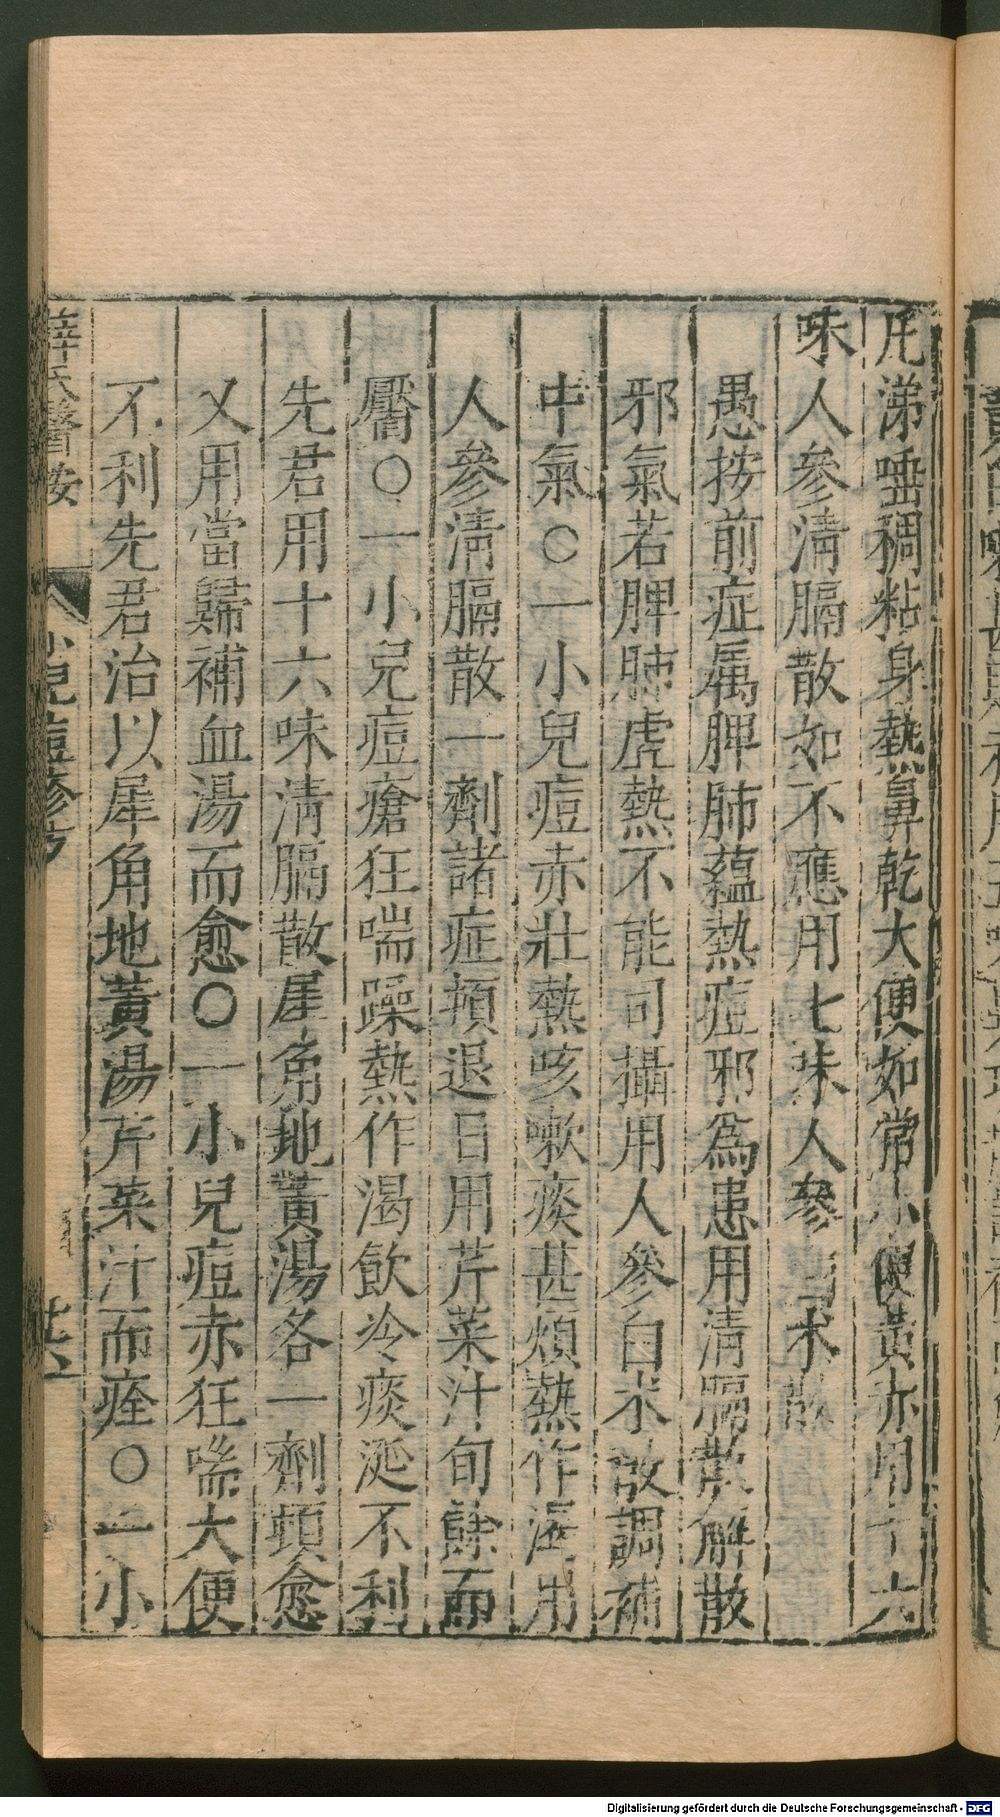 凡涕唾稠粘身熱鼻乾大便如常小便黃赤用十六
味人參清膈散如不應用七味人參白术散
愚按前症属脾肺蘊熱痘邪為患用清膈散解散
邪氣若脾肺虛熱不能司攝用人參白术散調補
中氣○一小兒痘赤壯熱咳嗽痰甚煩熱作渴用
人參清膈散一劑諸症頓退日用芹菜汁旬餘而
靨○一小兒痘瘡狂喘躁熱作渴飲冷痰涎不利
先君用十六味清膈散犀角地黃湯各一劑頓愈
又用當歸補血湯而愈○一小兒痘赤狂喘大便
不利先君治以犀角地黃湯芹菜汁而痊○一小
薛氏醫按 小兒痘疹方
Digitalisierung gefördert durch die Deutsche Forschungsgemeinschaft - DFG